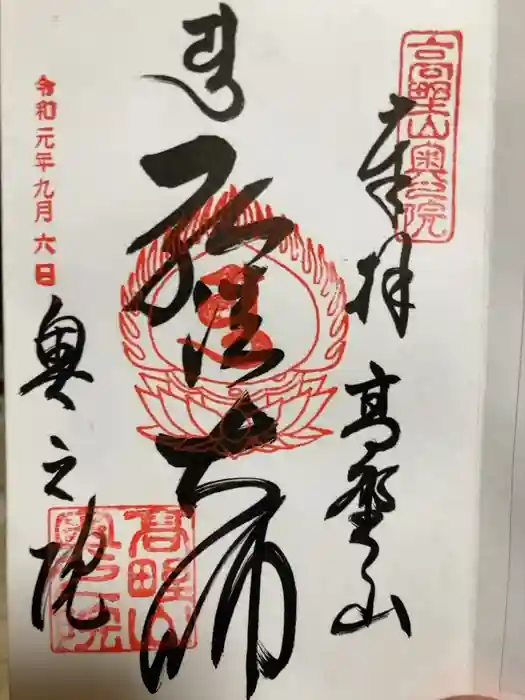 高野山奥之院
奉拝
高野山
弘法大師
高野山
奥之院
令和元年九月六日
奥之院